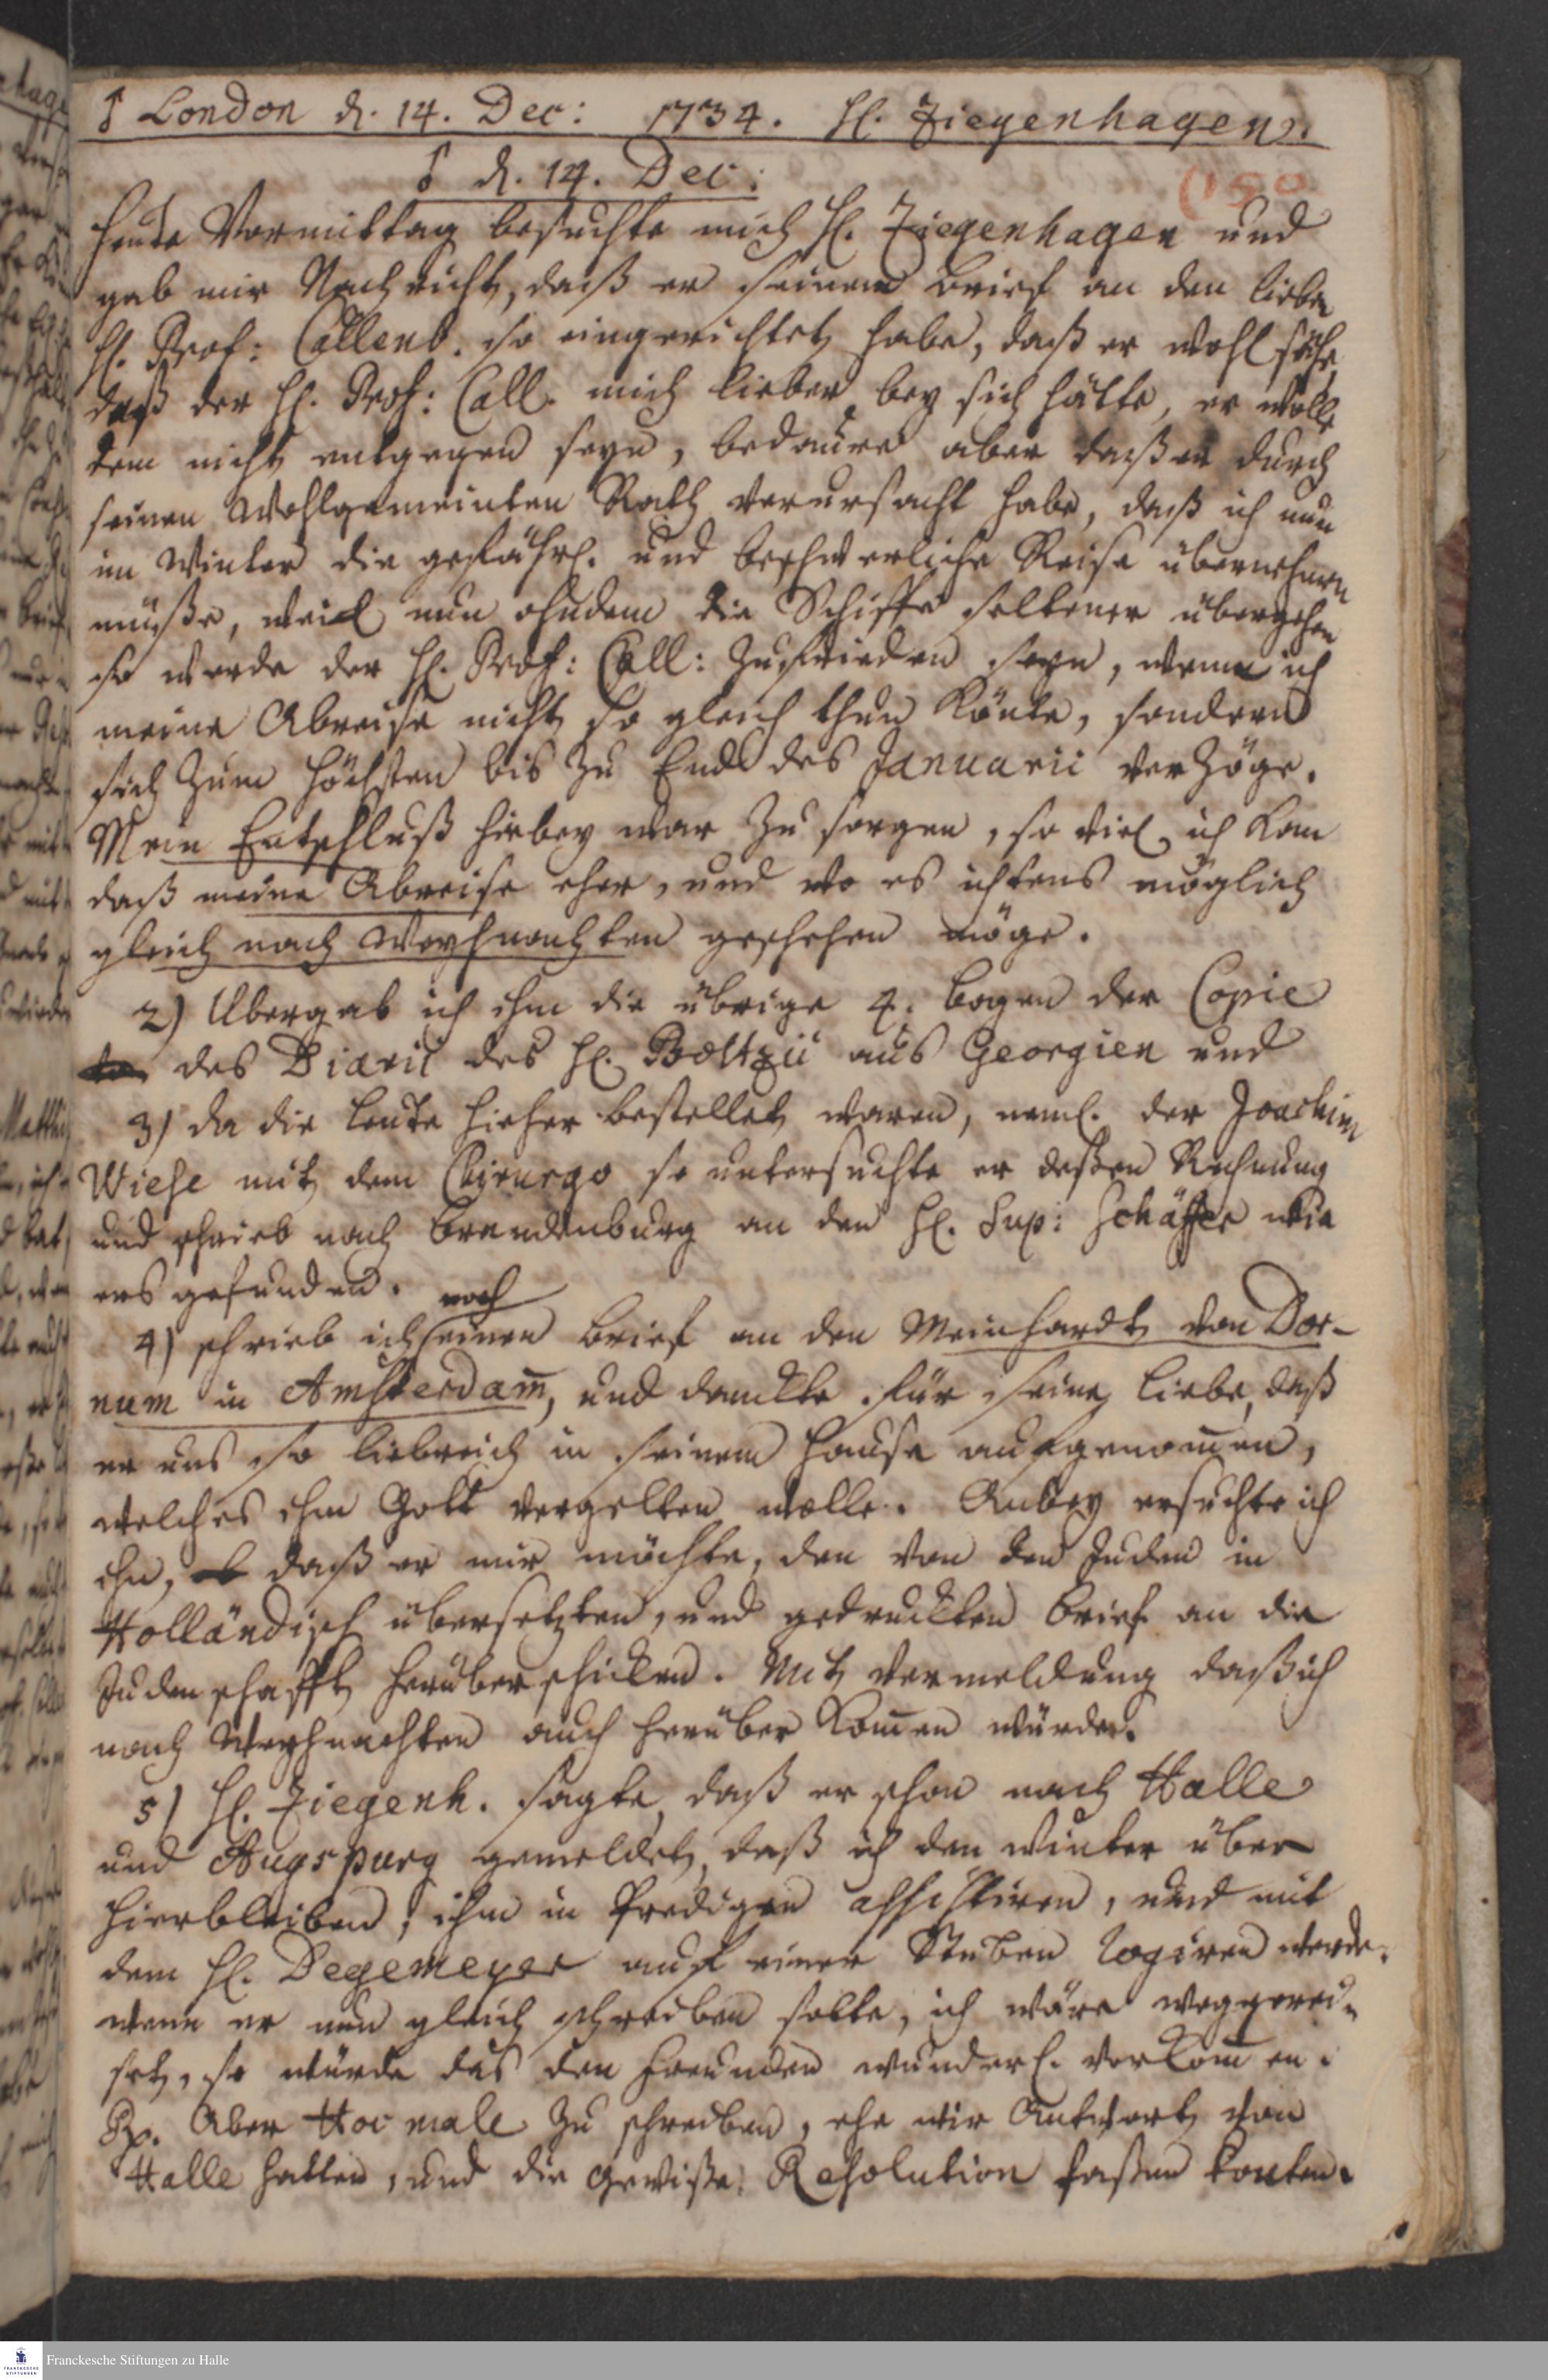 ♂ London d. 14. Dec: 1734. H. Ziegenhagen.
♂ d. 14. Dec:
(150
Heute Vormittag besuchte mich H. Ziegenhagen und
gab mir Nachricht, daß er seinen Brief an den lieben
H. Prof: Callenb. so eingerichtet habe, daß er wohl sähe,
daß der H. Prof: Call. mich lieber bey sich hätte, er wolle
dem nicht entgegen seyn, bedaure aber daß er durch
seinen wohlgemeinten Rath verursacht habe, daß ich nun
im Winter die gefährl. und beschwerliche Reise übernehmen
müßte, weil nun ohndem die Schiffe seltener übergehen
so werde der H. Prof: Call: zufrieden seyn, wenn ich
meine Abreise nicht so gleich thun könte, sondern
sich zum höchsten bis zu Ende des Januarii verzöge.
Mein Entschluß hiebey war zu sorgen, so viel ich kan
daß meine Abreise eher, und wo es ichtens möglich
gleich nach Weyhnachten geschehen möge.
2) Ubergab ich ihm die übrige 4. Bogen der Copie
des Diarii des H. Boltzii aus Georgien und
3) da die Leute hieher bestellet waren, neml. der Joachim
Wiese mit dem Chirurgo so untersuchte er deßen Rechnung
und schrieb nach Brandenburg an den H. Sup: Schäffer wie
ers gefunden.
4) schrieb ich noch einen Brief an den Meinhardt von Dor-
num in Amsterdam̄, und danckte für seine Liebe, daß
er uns so liebreich in seinem Hause aufgenom̄en,
welches ihm Gott vergelten wolle. Anbey ersuchte ich
ihn, daß er mir möchte, den von den Juden in
Holländisch übersetzten, und gedruckten Brief an die
Judenschafft herüber schicken. Mit Vermeldung daß ich
nach Weyhnachten auch herüber kom̄en würde.
5) H. Ziegenh. sagte, daß er schon nach Halle
und Augspurg gemeldet, daß ich den Winter über
hierbleiben, ihm in Predigen assistiren, und mit
dem H. Degemeyer auf einer Stuben logiren werde.
wenn er nun gleich schreiben solte, ich wäre weggerei-
set, so würde das den Freunden wunderl. vorkom̄en.
Rx. Aber Hoc male zu schreiben, ehe wir Antwort von
Halle hatten, und die gewiße Resolution faßen konten.
Franckesche Stiftungen zu Halle
FRANCKESCHE
STIFTUNGEN